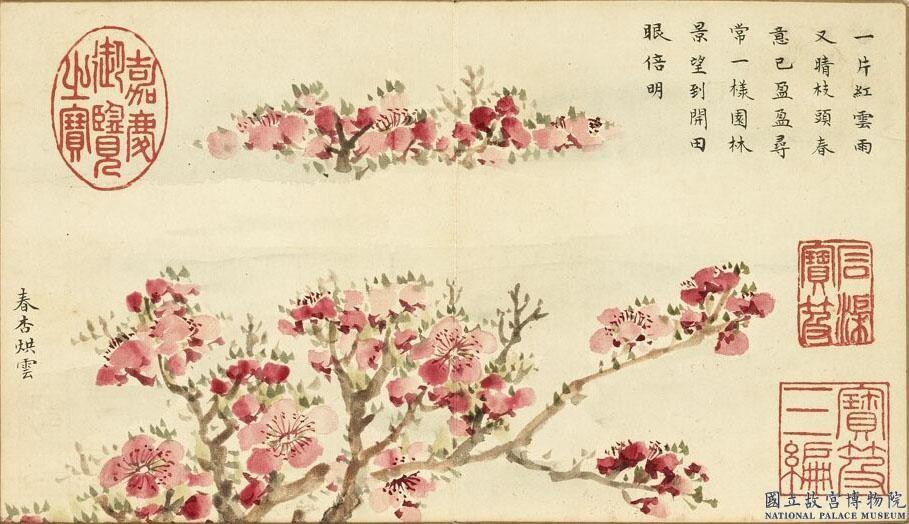 一片紅雲雨
又晴枝頭春
意已盈盈尋
常一樣園林
景望到開田
眼倍明
春杏烘雲
嘉慶
御覽
之寶
石渠
寶笈
寶笈
三編
國立故宮博物院
NATIONAL PALACE MUSEUM